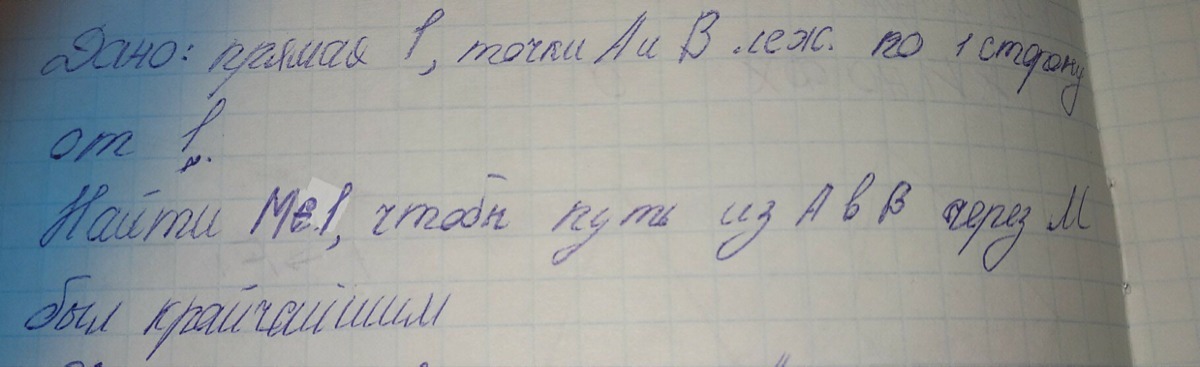 Дано: прямая l, точки А и В леж. по 1 сторону
от l.
Найти М∈l, чтобы путь из А в В через М
был крайчайшим